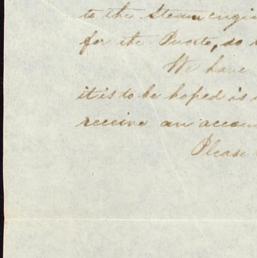 to the Steam engi
for the Puerto, so
We have
it is to be hoped is
receive an accou
Please